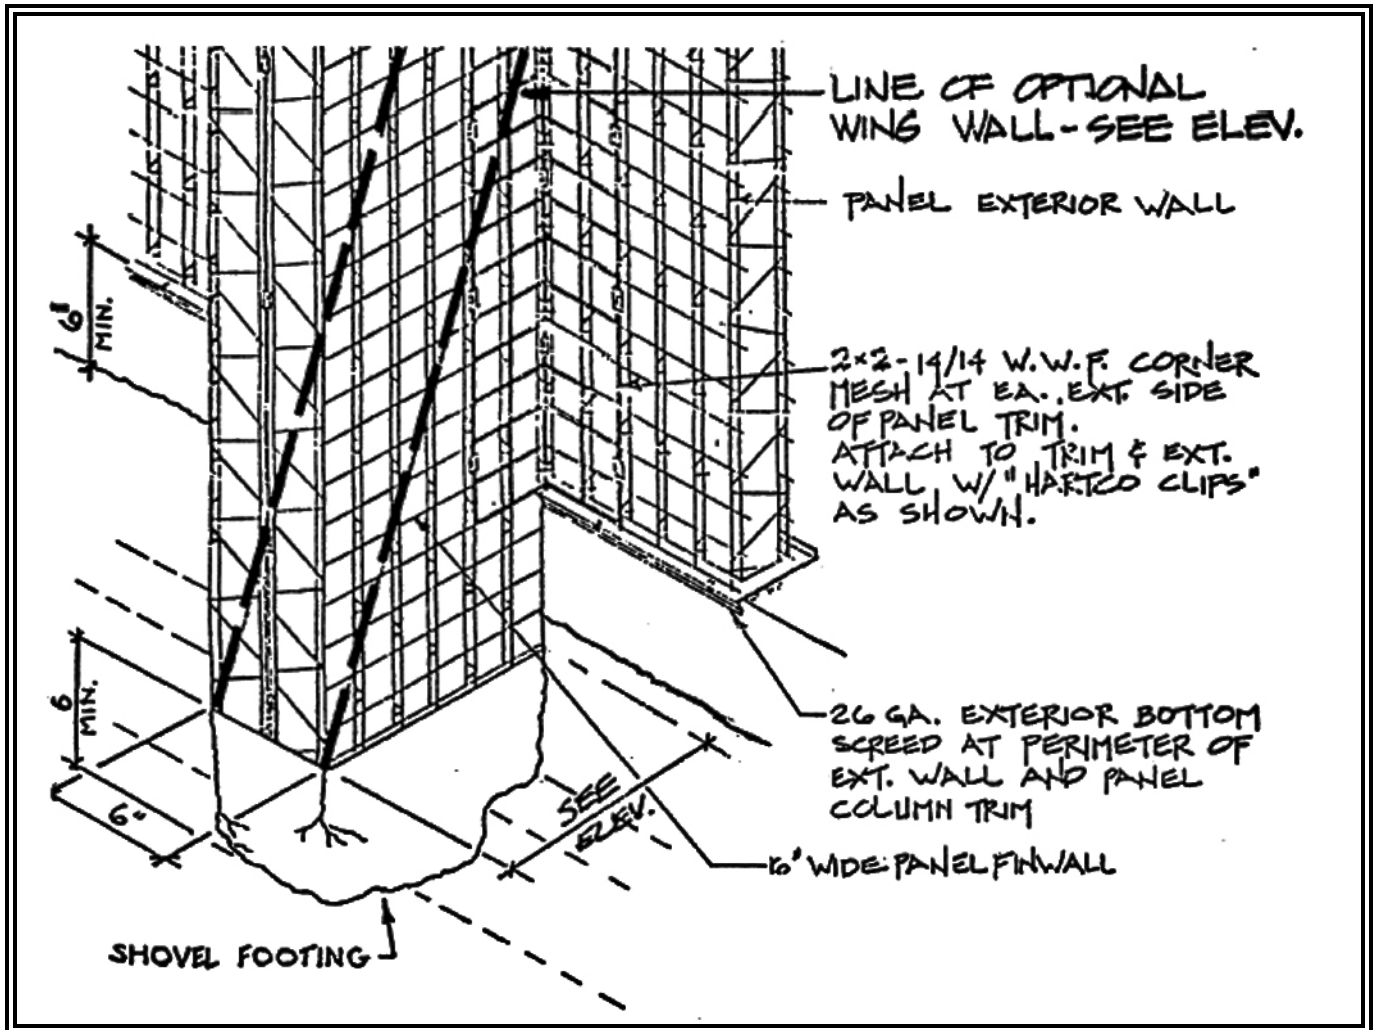 LINE OF OPTIONAL
WING WALL - SEE ELEV.
PANEL EXTERIOR WALL
6" MIN.
2x2 - 14/14 W.W.F. CORNER
MESH AT EA. EXT. SIDE
OF PANEL TRIM.
ATTACH TO TRIM & EXT.
WALL W/ "HARTCO CLIPS"
AS SHOWN.
6 MIN.
26 GA. EXTERIOR BOTTOM
SCREED AT PERIMETER OF
EXT. WALL AND PANEL
COLUMN TRIM
6"
SEE
ELEV.
WIDE PANEL FINWALL
SHOVEL FOOTING